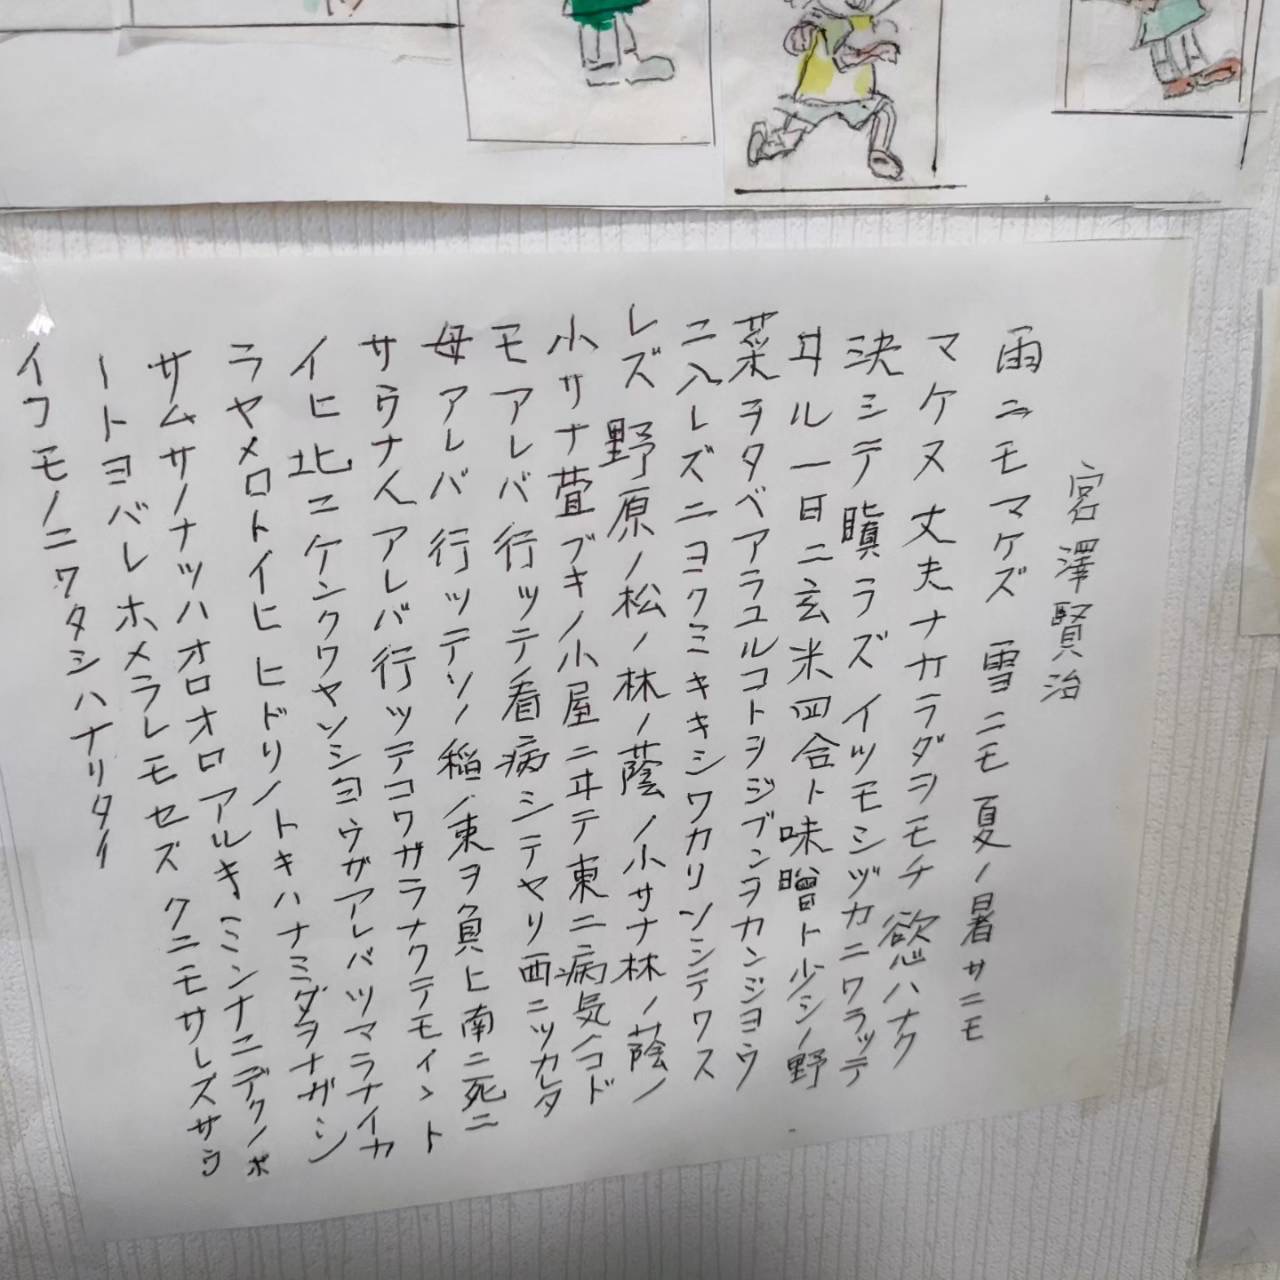 宮澤賢治
雨ニモマケズ 雪ニモ夏ノ暑サニモ
マケヌ丈夫ナカラダヲモチ慾ハナク
決シテ瞋ラズイツモシヅカニワラッテ
ヰル一日ニ玄米四合ト味噌ト少シノ野
菜ヲタベアラユルコトヲジブンヲカンジヨウ
ニ入レズニヨクミキキシワカリソシテワス
レズ野原ノ松ノ林ノ蔭ノ小サナ林ノ蔭ノ
小サナ萱ブキノ小屋ニヰテ東ニ病気ノコド
モアレバ行ッテ看病シテヤリ西ニツカレタ
母アレバ行ッテソノ稲ノ束ヲ負ヒ南ニ死ニ
サウナ人アレバ行ッテコワガラナクテモイヽト
イヒ北ニケンクワヤソシヨウガアレバツマラナイカ
ラヤメロトイヒヒドリノトキハナミダヲナガシ
サムサノナツハオロオロアルキミンナニデクノボ
ートヨバレホメラレモセズクニモサレズサウ
イフモノニワタシハナリタイ